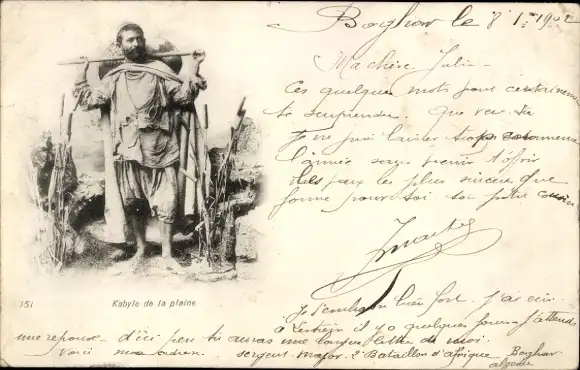 Boghar le 8/1 1902
Ma chère Julia
Ces quelques mots vont certainement
te surprendre. Que veux tu
Je ne puis laisser
l'année sans venir t'offrir
les plus sincères que
forme pour toi ton petit cousin
151
Kabyle de la plaine
Je t'embrasse bien fort. J'ai écrit
à il y a quelques jours j'attends
une réponse. d'ici peu tu auras une longue lettre de moi.
Voici mon adresse. sergent-major. 2e Bataillon d'Afrique Boghar
algérie